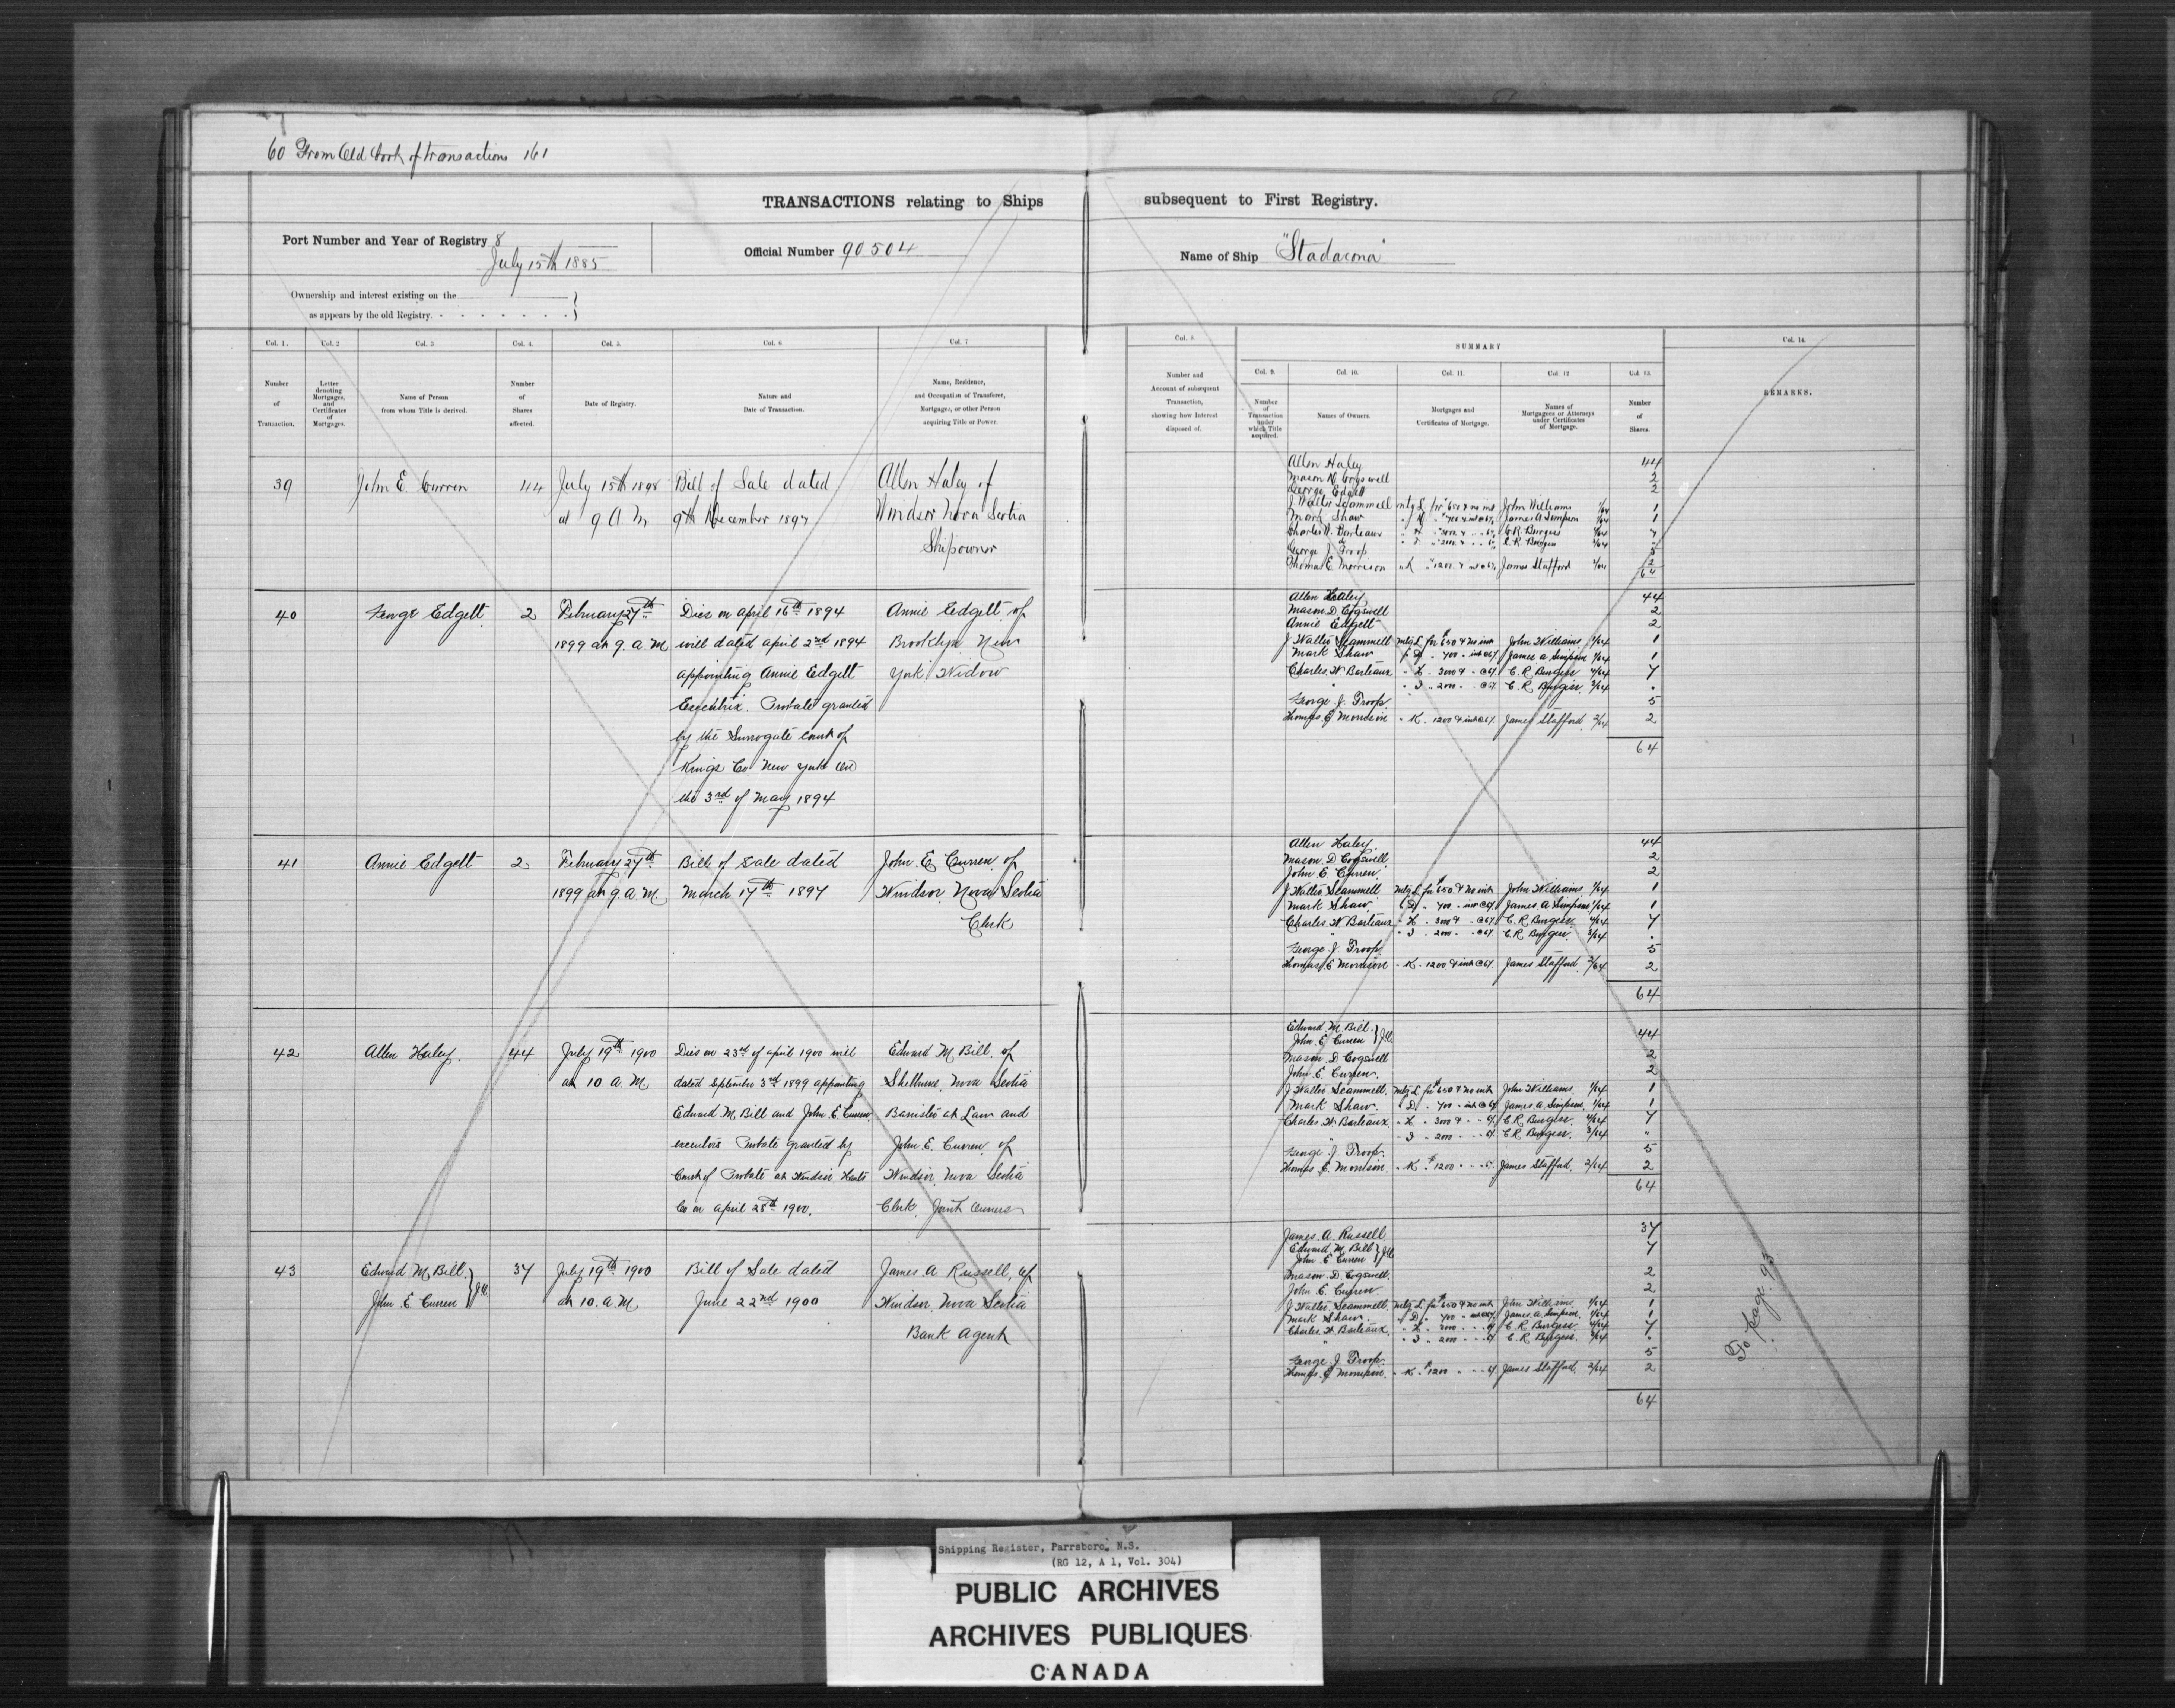 60 From Old book of transactions 161
TRANSACTIONS relating to Ships subsequent to First Registry.
Port Number and Year of Registry 8
July 15th 1885
Official Number 90504
Name of Ship "Stadacona"
Ownership and interest existing on the
as appears by the old Registry.
Col. 1. Col. 2 Col. 3 Col. 4. Col. 5. Col. 6 Col. 7
Number of Transaction.
Letter denoting Mortgages, and Certificates of Mortgages.
Name of Person from whom Title is derived.
Number of Shares affected.
Date of Registry.
Nature and Date of Transaction.
Name, Residence, and Occupation of Transferee, Mortgagee, or other Person acquiring Title or Power.
Col. 8
Number and Account of subsequent Transaction, showing how Interest disposed of.
SUMMARY
Col. 9. Col. 10. Col. 11. Col. 12 Col. 13.
Number of Transaction under which Title acquired.
Names of Owners.
Mortgages and Certificates of Mortgage.
Names of Mortgagees or Attorneys under Certificates of Mortgage.
Number of Shares.
Col. 14.
REMARKS.
39 John E. Curren 44 July 15th 1898 Bill of Sale dated Allen Haley of
at 9 A M 9th December 1897 Windsor Nova Scotia
Shipowner
Allen Haley 44
Mason D Cogswell 2
George Edgett 2
J Walter Scammell mtg L for 650 & no int John Williams 1/64 1
Mark Shaw James A Simpson 1/64 1
Charles W. Borteaux C R Burgess 4/64 7
C. R. Burgess 3/64
George J. Troop 5
Thomas E Morrison " K " 1200 & int @ 6% James Stafford 2/64 2
64
40 George Edgett 2 February 27th Dies on April 16th 1894 Annie Edgett of
1899 at 9. a. M will dated April 2nd 1894 Brooklyn New
appointing Annie Edgett York Widow
Executrix. Probate granted
by the Surrogate Court of
Kings Co New York on
the 3rd of May 1894
Allen Haley 44
Mason D. Cogswell 2
Annie Edgett 2
J Walter Scammell mtg L for $650 & no int John Williams 1/64 1
Mark Shaw " D " 700 " int @ 6% James A Simpson 1/64 1
Charles W Borteaux " H " 3000 & " @ 6% C. R Burgess 4/64 7
" " I " 2000 " " @ 6% C. R Burgess 3/64 "
George J. Troop 5
Thomas E Morrison " K " 1200 & int @ 6% James Stafford 2/64 2
64
41 Annie Edgett 2 February 27th Bill of Sale dated John E Curren of
1899 at 9. a. M March 17th 1897 Windsor Nova Scotia
Clerk
Allen Haley 44
Mason D Cogswell 2
John E Curren 2
J Walter Scammell mtg L for $650 & no int John Williams 1/64 1
Mark Shaw " D " 700 " int @ 6% James A Simpson 1/64 1
Charles W Borteaux " H " 3000 & " @ 6% C. R Burgess 4/64 7
" " I " 2000 " " @ 6% C. R Burgess 3/64 "
George J. Troop 5
Thomas E Morrison " K " 1200 & int @ 6% James Stafford 2/64 2
64
42 Allen Haley. 44 July 19th 1900 Dies on 23rd of April 1900 will Edward M Bill of
at 10. a. M dated September 3rd 1899 appointing Shelburne Nova Scotia
Edward M. Bill and John E Curren Barrister at Law and
executors Probate granted by John E. Curren of
Court of Probate at Windsor Hants Windsor Nova Scotia
Co on April 28th 1900. Clerk Joint Owners
Edward M. Bill }
John E Curren } J.O. 44
Mason D Cogswell 2
John E. Curren 2
J Walter Scammell mtg L for $650 & no int John Williams 1/64 1
Mark Shaw " D " 700 " int @ 6% James A Simpson 1/64 1
Charles W Borteaux " H " 3000 & " " 6% C R Burgess 4/64 7
" " I " 2000 " " " 6% C R Burgess 3/64 "
George J. Troop 5
Thomas E. Morrison " K " $1200 James Stafford 2/64 2
64
43 Edward M Bill } 37 July 19th 1900 Bill of Sale dated James A Russell, of
John E. Curren } J.O. at 10. a. M June 22nd 1900 Windsor Nova Scotia
Bank Agent
James A. Russell 37
Edward M. Bill }
John E Curren } J.O. 7
Mason D. Cogswell 2
John E. Curren 2
J Walter Scammell mtg L for $650 & no int John Williams 1/64 1
Mark Shaw " D " 700 " int @ 6% James A. Simpson 1/64 1
Charles W Borteaux " H " 3000 " " 6% C R Burgess 4/64 7
" " I " 2000 " " 6% C. R Burgess 3/64 "
George J Troop 5
Thomas E Morrison " K " $1200 " " 6% James Stafford 2/64 2
64
To page 93
Shipping Register, Parrsboro, N.S.
(RG 12, A 1, Vol. 304)
PUBLIC ARCHIVES
ARCHIVES PUBLIQUES
CANADA